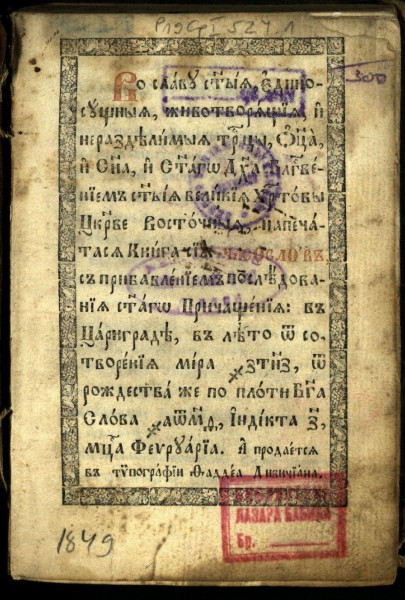 Р19Ср I 527.1
300
Во сла́ву ст҃ы́ѧ, є҆дино-
су́щныѧ, животворѧ́щїѧ, и҆
нераздѣ́лимыѧ трⷪ҇цы, Ѻ҆ц҃а̀,
и҆ Сн҃а, и҆ Ст҃а́гѡ Дх҃а. Блгⷭ҇ве-
нїемъ ст҃ы́ѧ вели́кїѧ Хрⷭ҇то́вы
Цр҃кве Восто́чныѧ, напеча́-
тасѧ Кни́га сїѧ̀ Часосло́въ,
съ прибавле́нїемъ послѣ́дова-
нїѧ ст҃а́гѡ Причаще́нїѧ: въ
Цариградѣ, въ лѣ́то ѿ со-
творе́нїѧ мі́ра ҂зтн҃з, ѿ
рождества́ же по пло́ти Бг҃а
Сло́ва ҂аѡм҃ѳ, І҆нді́кта з҃,
мцⷭ҇а Феурꙋа́рїа. И҆ продае́тсѧ
въ тѷпогра́фїи Ѳадде́а Дивичїана.
ЛАЗАРА
Бр.
1849